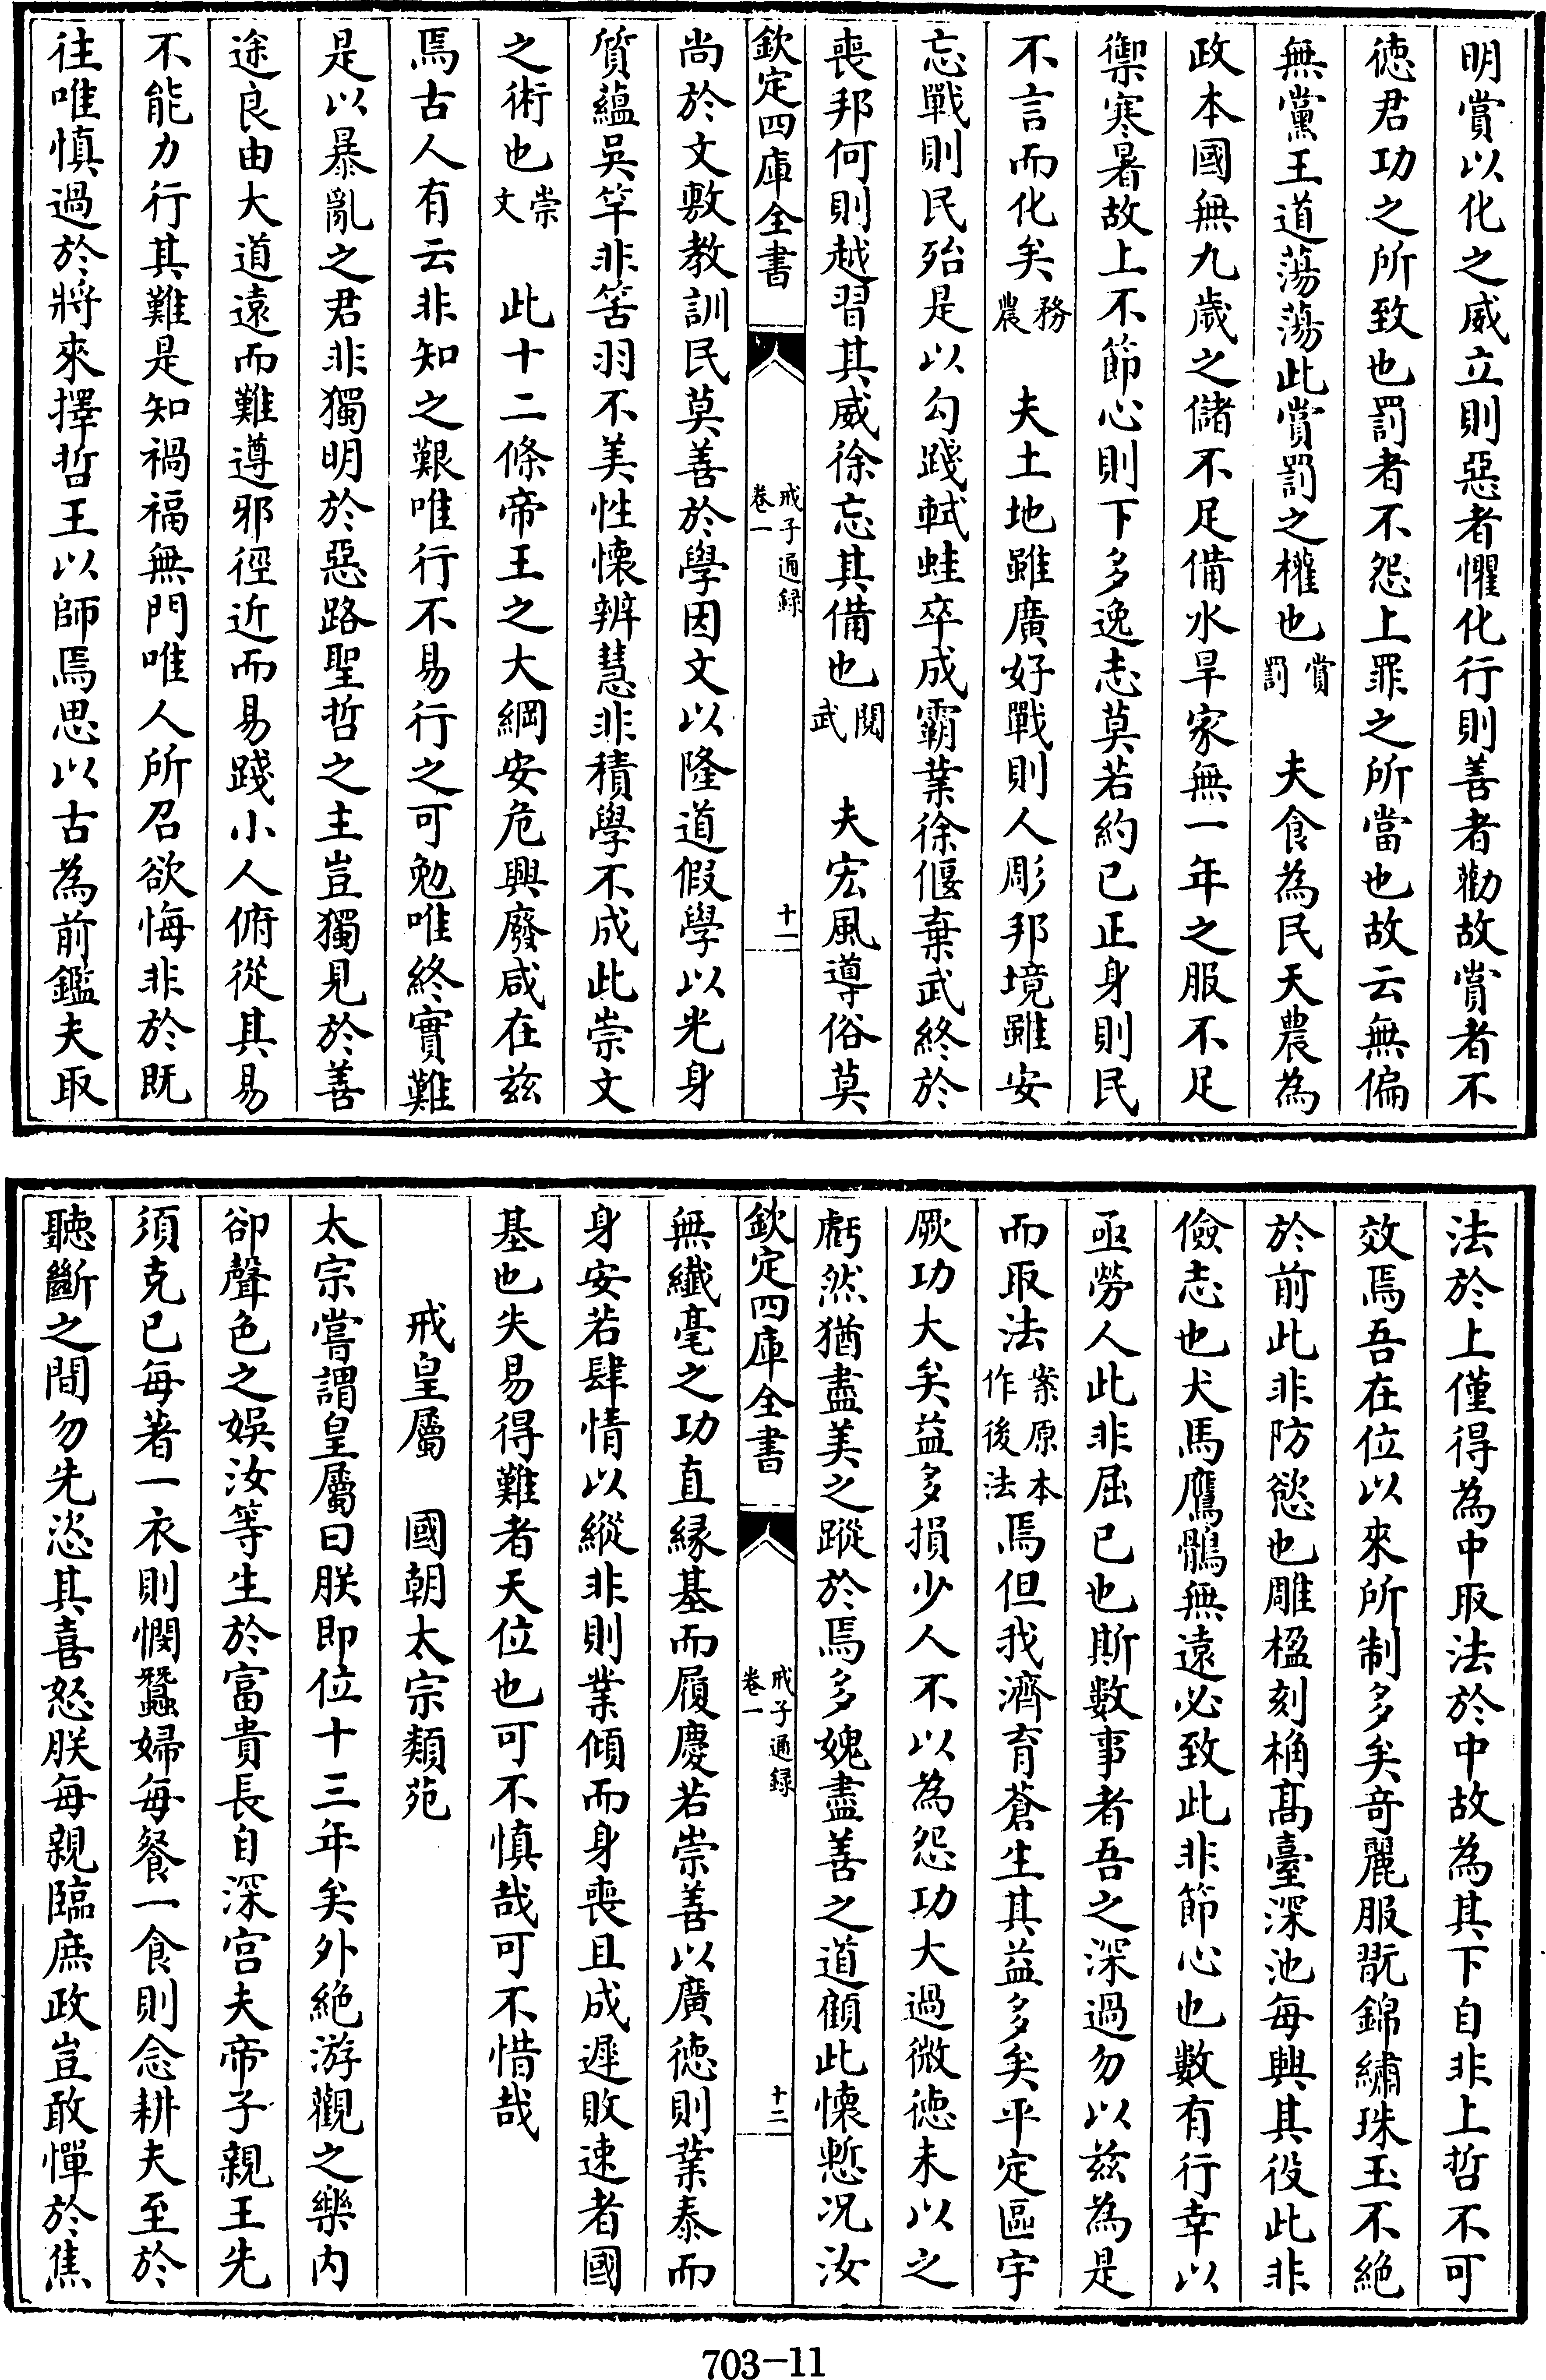 明賞以化之威立則惡者懼化行則善者勸故賞者不
徳君功之所致也罰者不怨上罪之所當也故云無偏
無黨王道蕩蕩此賞罰之權也賞罰　夫食為民天農為
政本國無九歳之儲不足備水旱家無一年之服不足
禦寒暑故上不節心則下多逸志莫若約已正身則民
不言而化矣務農　夫土地雖廣好戰則人彫邦境雖安
忘戰則民殆是以勾踐軾蛙卒成霸業徐偃棄武終於
喪邦何則越習其威徐忘其備也閱武　夫宏風導俗莫
欽定四庫全書　戒子通録卷一　十一
尚於文敷教訓民莫善於學因文以隆道假學以光身
質蘊吳竿非筈羽不美性懐辨慧非積學不成此崇文
之術也崇文　此十二條帝王之大綱安危興廢咸在兹
焉古人有云非知之艱唯行不易行之可勉唯終實難
是以暴亂之君非獨明於惡路聖哲之主豈獨見於善
途良由大道遠而難遵邪徑近而易踐小人俯從其易
不能力行其難是知禍福無門唯人所召欲悔非於既
往唯慎過於將來擇哲王以師焉思以古為前鑑夫取
法於上僅得為中取法於中故為其下自非上哲不可
效焉吾在位以來所制多矣奇麗服翫錦繡珠玉不絶
於前此非防慾也雕楹刻桷髙臺深池每興其役此非
儉志也犬馬鷹鶻無遠必致此非節心也數有行幸以
亟勞人此非屈已也斯數事者吾之深過勿以兹為是
而取法案原本作後法焉但我濟育蒼生其益多矣平定區宇
厥功大矣益多損少人不以為怨功大過微徳未以之
虧然猶盡美之蹤於焉多媿盡善之道顧此懐慙况汝
欽定四庫全書　戒子通録卷一　十二
無纖毫之功直縁基而履慶若崇善以廣徳則業泰而
身安若肆情以縱非則業傾而身喪且成遲敗速者國
基也失易得難者天位也可不慎哉可不惜哉
戒皇屬　國朝太宗類苑
太宗嘗謂皇屬曰朕即位十三年矣外絶游觀之樂内
卻聲色之娯汝等生於富貴長自深宫夫帝子親王先
須克已每著一衣則憫蠶婦每餐一食則念耕夫至於
聽斷之間勿先恣其喜怒朕每親臨庶政豈敢憚於焦
703-11